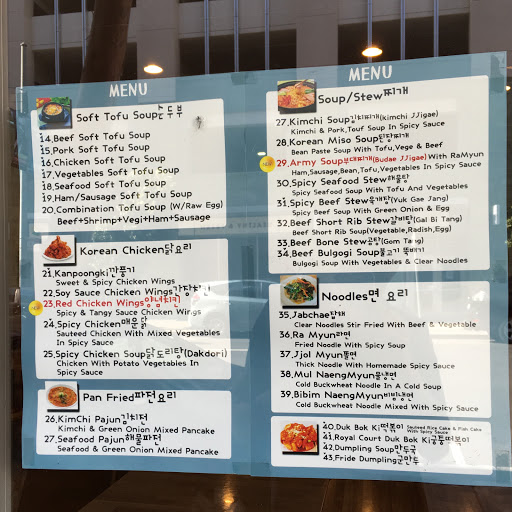 MENU
Soft Tofu Soup순두부
14,Beef Soft Tofu Soup
15,Pork Soft Tofu Soup
16,Chicken Soft Tofu Soup
17,Vegetables Soft Tofu Soup
18,Seafood Soft Tofu Soup
19,Ham/Sausage Soft Tofu Soup
20,Combination Tofu Soup (W/Raw Egg)
Beef+Shrimp+Vegi+Ham+Sausage
Korean Chicken닭요리
21,Kanpoongki깐풍기
Sweet & Spicy Chicken Wings
22,Soy Sauce Chicken Wings간장치킨
23,Red Chicken Wings양념치킨
Spicy & Tangy Sauce Chicken Wings
24,Spicy Chicken매운닭
Sauteed Chicken With Mixed Vegetables
In Spicy Sauce
25,Spicy Chicken Soup닭도리탕(Dakdori)
Chicken With Potato Vegetables In
Spicy Sauce
Pan Fried파전요리
26,KimChi Pajun김치전
Kimchi & Green Onion Mixed Pancake
27,Seafood Pajun해물파전
Seafood & Green Onion Mixed Pancake
MENU
Soup/Stew찌개
27,Kimchi Soup김치찌개(Kimchi JJigae)
Kimchi & Pork,Touf Soup In Spicy Sauce
28,Korean Miso Soup된장찌개
Bean Paste Soup With Tofu,Vege & Beef
29,Army Soup부대찌개(Budae JJigae) With RaMyun
Ham,Sausage,Bean,Tofu,Vegetables In Spicy Sauce
30,Spicy Seafood Stew해물탕
Spicy Seafood Soup With Tofu And Vegetables
31,Spicy Beef Stew육개장(Yuk Gae Jang)
Spicy Beef Soup With Green Onion & Egg
32,Beef Short Rib Stew갈비탕(Gal Bi Tang)
Beef Short Rib Soup(Vegetable,Radish,Egg)
33,Beef Bone Stew곰탕(Gom Tang)
34,Beef Bulgogi Soup불고기 뚝배기
Bulgogi Soup With Vegetables & Clear Noodles
Noodles면 요리
35,Jabchae잡채
Clear Noodles Stir Fried With Beef & Vegetable
36,Ra Myun라면
Fried Noodle With Spicy Soup
37,JJol Myun쫄면
Thick Noodle With Homemade Spicy Sauce
38,Mul NaengMyun물냉면
Cold Buckwheat Noodle In A Cold Soup
39,Bibim NaengMyun비빔냉면
Cold Buckwheat Noodle Mixed With Spicy Sauce
40,Duk Bok Ki떡볶이 Sauteed Rice Cake & Fish Cake
With Spicy Sauce
41,Royal Court Duk Bok Ki궁중떡보이
42,Dumpling Soup만두국
43,Fride Dumpling군만두